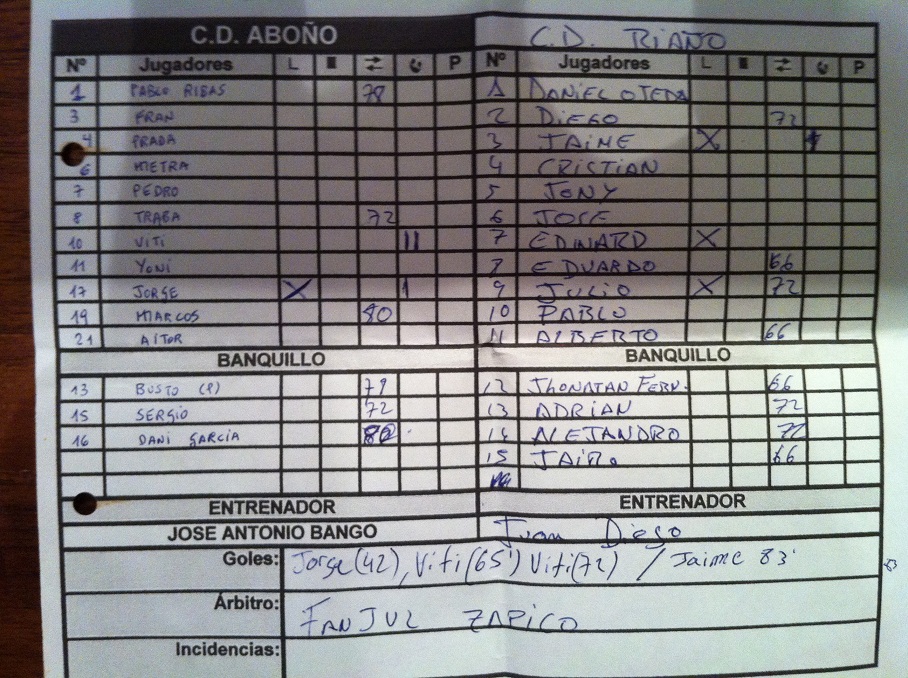 C.D. ABOÑO C.D. RIAÑO
Nº Jugadores L P Nº Jugadores L P
1 PABLO RIBAS 78 1 DANIEL OJEDA
3 FRAN 2 DIEGO 72
4 PRADA 3 JAIME X
6 MIETRA 4 CRISTIAN
7 PEDRO 5 JONY
8 TRABA 72 6 JOSE
10 VITI II 7 EDWARD X
11 YONI 8 EDUARDO 66
17 JORGE X I 9 JULIO X 72
19 MARCOS 80 10 PABLO
21 AITOR 11 ALBERTO 66
BANQUILLO BANQUILLO
13 BUSTO (P) 79 12 JHONATAN FERN. 66
15 SERGIO 72 13 ADRIAN 72
16 DANI GARCIA 80 14 ALEJANDRO 72
15 JAIRO 66
ENTRENADOR ENTRENADOR
JOSE ANTONIO BANGO Juan Diego
Goles: Jorge (42), Viti (65') Viti (72) / Jaime 83'
Árbitro: FANJUL ZAPICO
Incidencias: